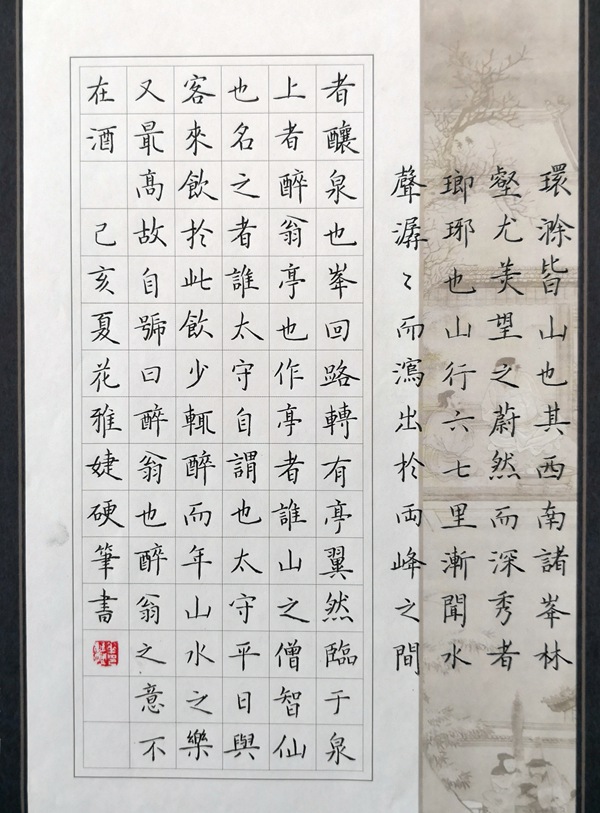 環滁皆山也其西南諸峯林
壑尤美望之蔚然而深秀者
瑯琊也山行六七里漸聞水
聲潺〻而瀉出扵両峰之間
者釀泉也峯回路轉有亭翼然臨于泉
上者醉翁亭也作亭者誰山之僧智仙
也名之者誰太守自謂也太守平日與
客來飲扵此飲少輒醉而年山水之樂
又最髙故自號曰醉翁也醉翁之意不
在酒 己亥夏花雅婕硬筆書